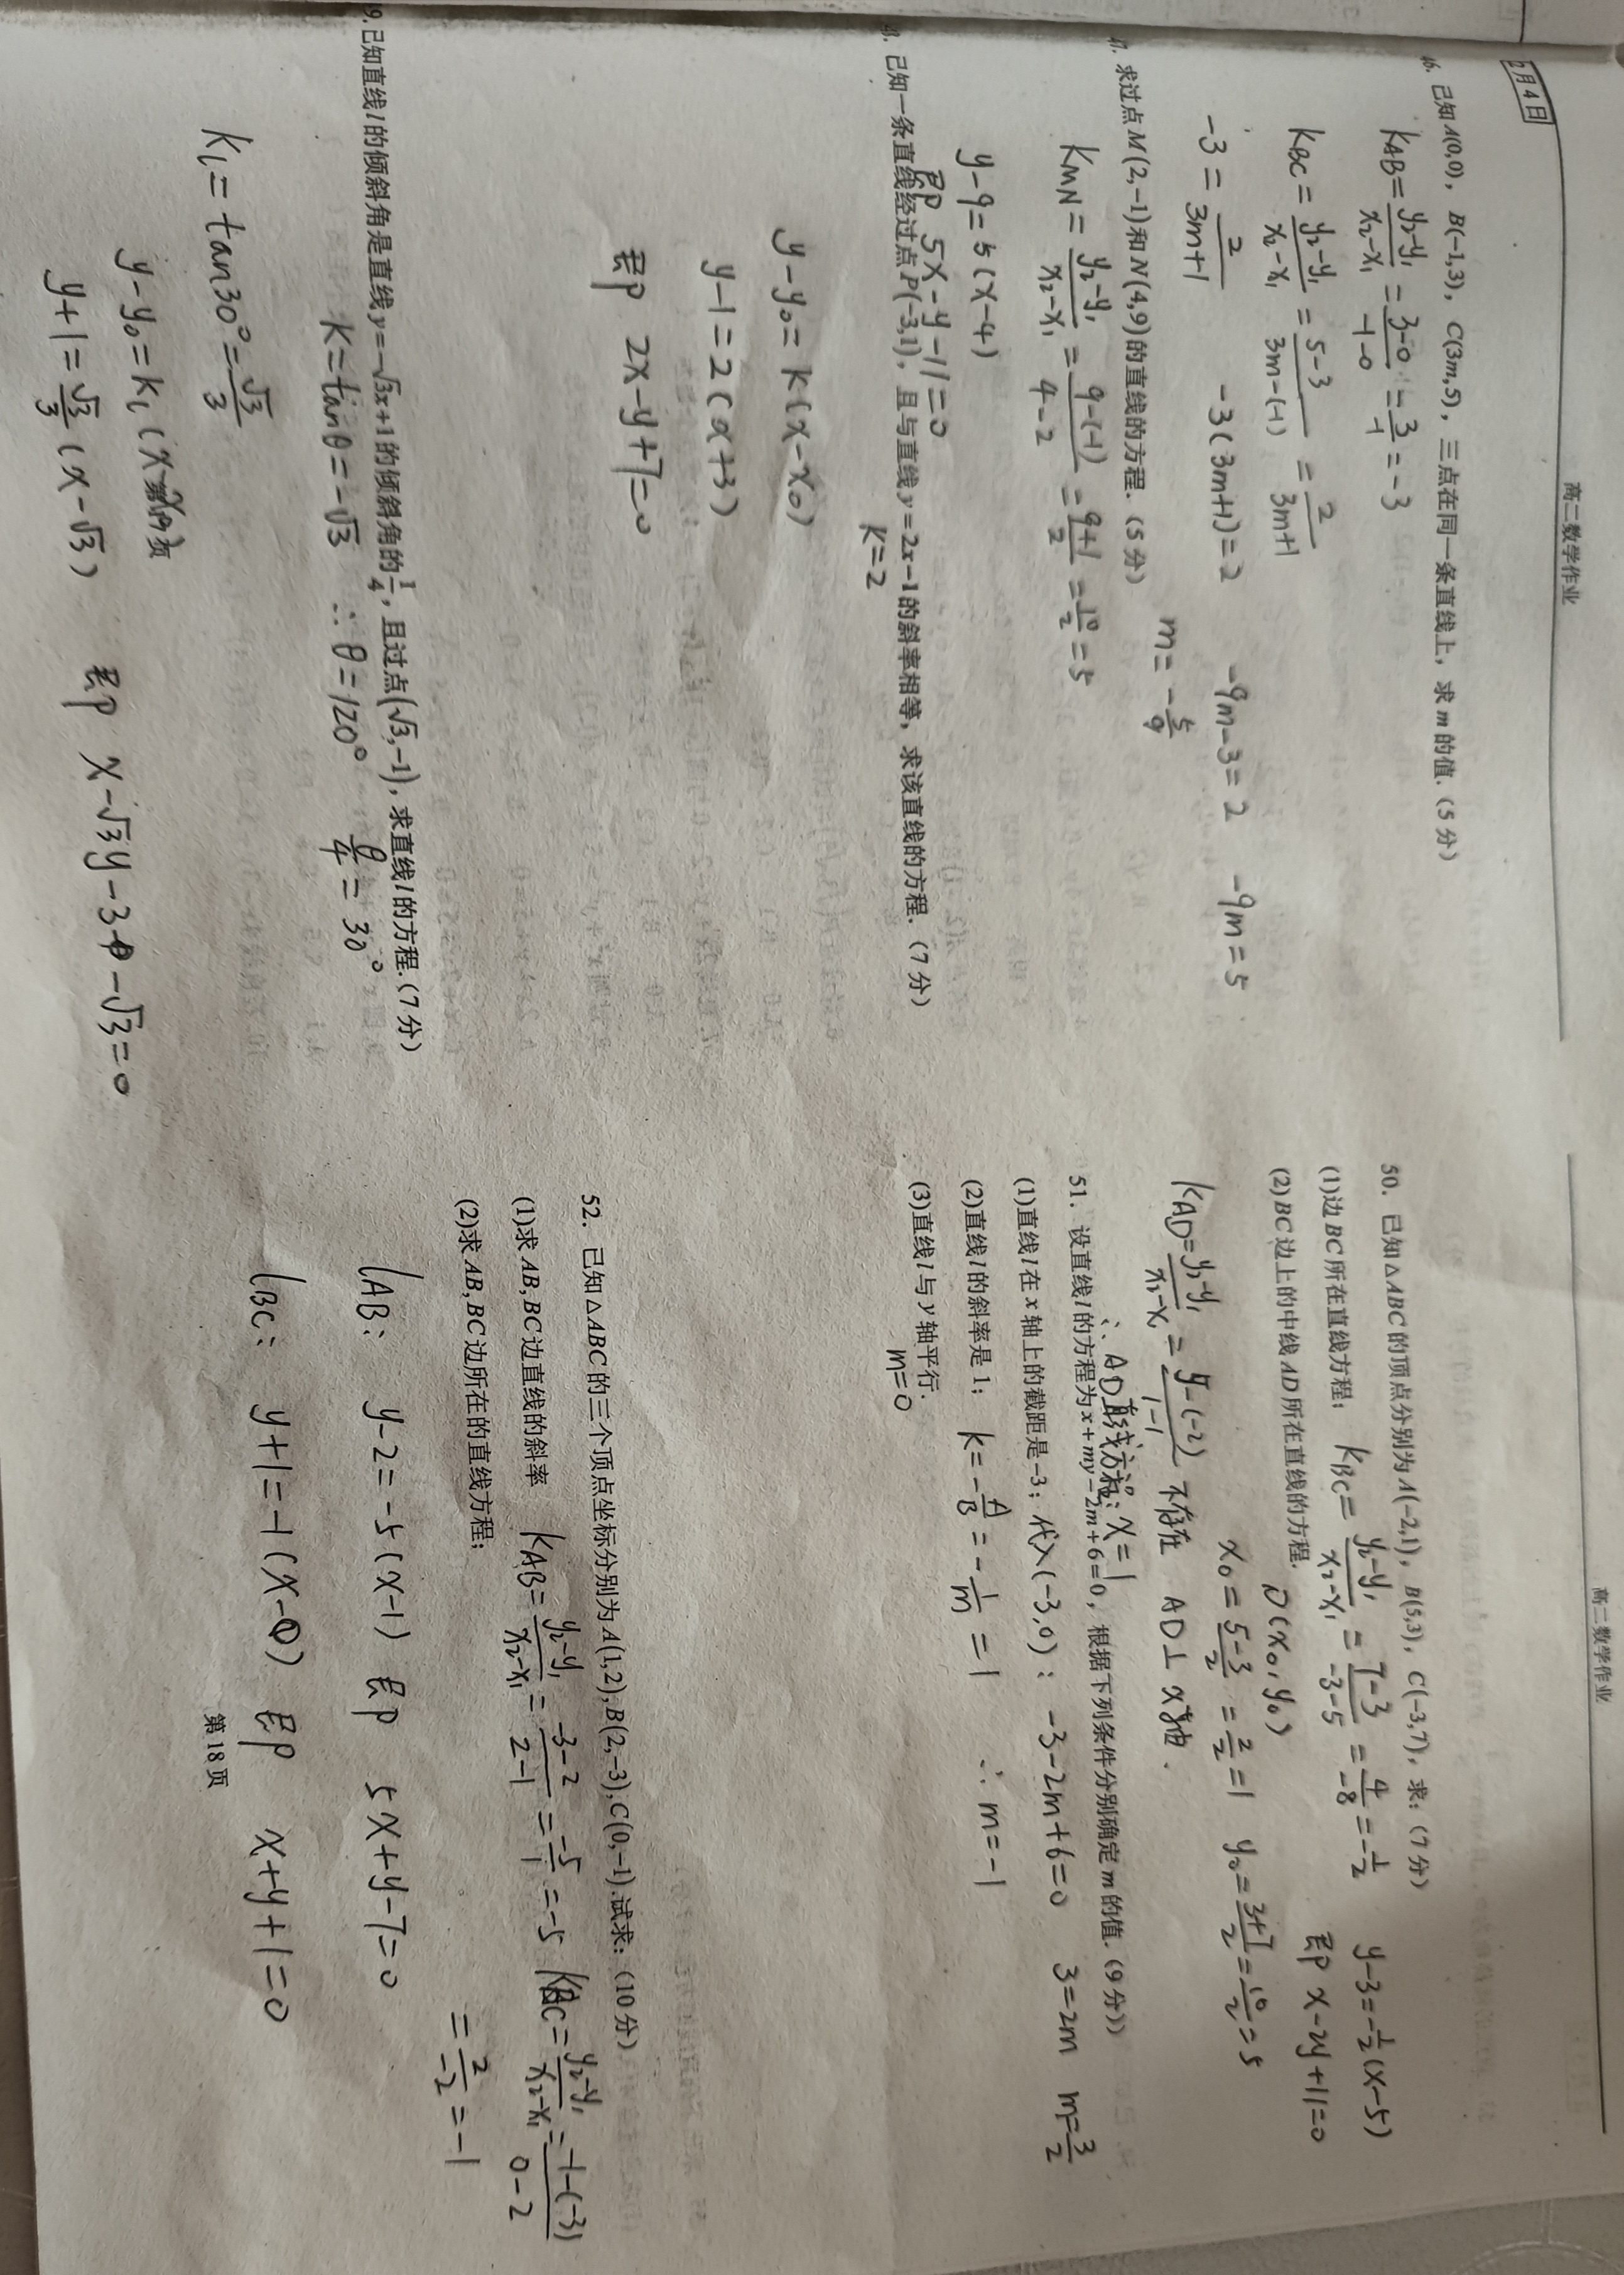 2月4日
高二数学作业
46. 已知A(0,0), B(-1,3), C(3m,5), 三点在同一条直线上, 求m的值. (5分)
K_AB = (y₂-y₁)/(x₂-x₁) = (3-0)/(-1-0) = 3/-1 = -3
K_BC = (y₂-y₁)/(x₂-x₁) = (5-3)/(3m-(-1)) = 2/(3m+1)
-3 = 2/(3m+1) -3(3m+1)=2 -9m-3=2 -9m=5
m=-5/9
47. 求过点M(2,-1)和N(4,9)的直线的方程. (5分)
K_MN = (y₂-y₁)/(x₂-x₁) = (9-(-1))/(4-2) = (9+1)/2 = 10/2 = 5
y-9=5(x-4)
即 5x-y-11=0
48. 已知一条直线经过点P(-3,1), 且与直线y=2x-1的斜率相等, 求该直线的方程. (7分)
K=2
y-y₀=k(x-x₀)
y-1=2(x+3)
即 2x-y+7=0
49. 已知直线l的倾斜角是直线y=-√3x+1的倾斜角的1/4, 且过点(√3,-1), 求直线l的方程. (7分)
K=tanθ=-√3 ∴θ=120° θ/4=30°
K₁=tan30°=√3/3
y-y₀=K₁(x-x₀)
y+1=√3/3(x-√3) 即 x-√3y-3-√3=0
第17页
高二数学作业
50. 已知△ABC的顶点分别为A(-2,1), B(5,3), C(-3,7), 求: (7分)
(1)边BC所在直线方程; K_BC=(y₂-y₁)/(x₂-x₁)=(7-3)/(-3-5)=4/-8=-1/2 y-3=-1/2(x-5)
即 x-2y+11=0
(2)BC边上的中线AD所在直线的方程.
D(x₀,y₀)
x₀=(5-3)/2=2/2=1 y₀=(3+7)/2=10/2=5
K_AD=(y₂-y₁)/(x₂-x₁)=(y-(-2))/(1-1) 不存在 AD⊥x轴.
∴AD直线方程: x=1
51. 设直线l的方程为x+my-2m+6=0, 根据下列条件分别确定m的值. (9分))
(1)直线l在x轴上的截距是-3; 代入(-3,0): -3-2m+6=0 3=2m m=3/2
(2)直线l的斜率是1; k=-A/B=-1/m=1 ∴m=-1
(3)直线l与y轴平行.
m=0
52. 已知△ABC的三个顶点坐标分别为A(1,2),B(2,-3),C(0,-1).试求: (10分)
(1)求AB,BC边直线的斜率 K_AB=(y₂-y₁)/(x₂-x₁)=(-3-2)/(2-1)=-5/1=-5 K_BC=(y₂-y₁)/(x₂-x₁)=(-1-(-3))/(0-2)
=2/-2=-1
(2)求AB,BC边所在的直线方程;
l_AB: y-2=-5(x-1) 即 5x+y-7=0
l_BC: y+1=-1(x-0) 即 x+y+1=0
第18页